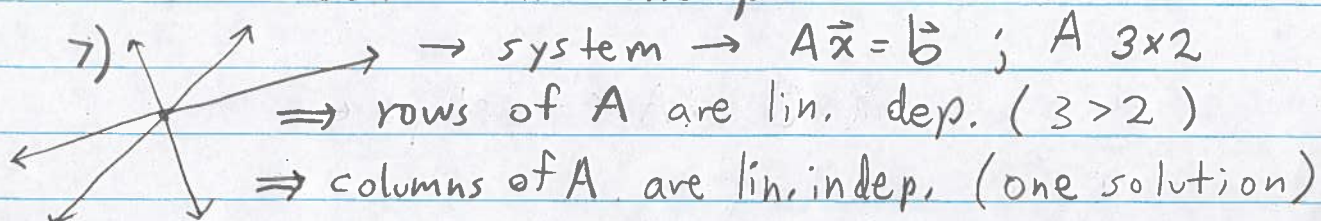 7) → system → Ax⃗ = b⃗ ; A 3×2
⇒ rows of A are lin. dep. (3>2)
⇒ columns of A are lin. indep. (one solution)